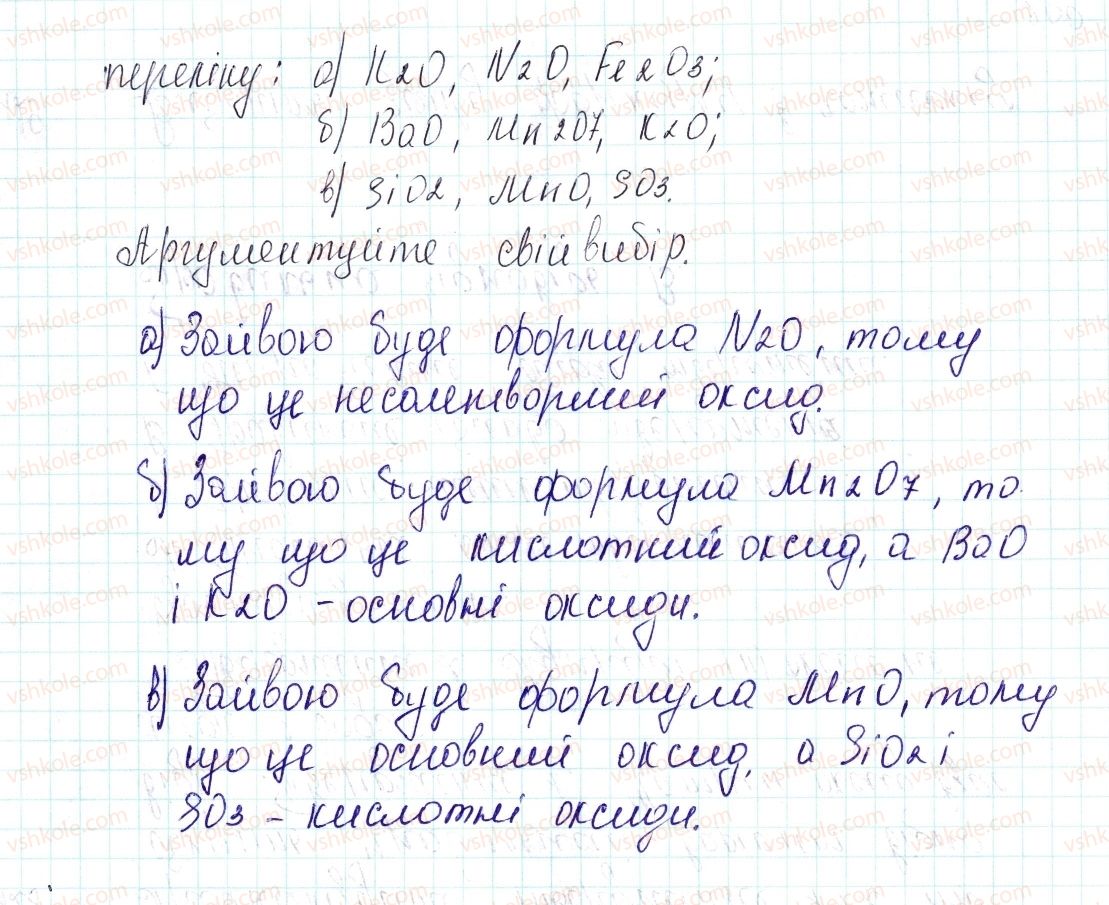 переліку: а) K2O, N2O, Fe2O3;
б) BaO, Mn2O7, K2O;
в) SiO2, MnO, SO3.
Аргументуйте свій вибір.
а) Зайвою буде формула N2O, тому
що це несолетворний оксид.
б) Зайвою буде формула Mn2O7, то
му що це кислотний оксид, а BaO
і K2O - основні оксиди.
в) Зайвою буде формула MnO, тому
що це основний оксид, а SiO2 і
SO3 - кислотні оксиди.
vshkole.com